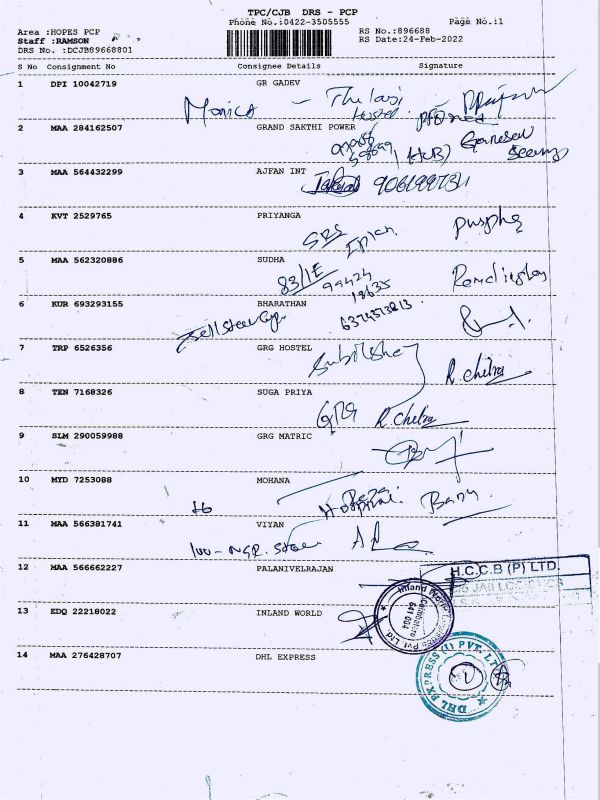 TPC/CJB DRS - PCP
Phone No.:0422-3505555 Page No.:1
Area :HOPES PCP RS No.:896688
Staff :RAMSON RS Date:24-Feb-2022
DRS No. :DCJB89668801
S No Consignment No Consignee Details Signature
1 DPI 10042719 GR GADEV
Monica - Thulasi
Hostel
2 MAA 284162507 GRAND SAKTHI POWER
Ganesan
(HUB)
3 MAA 564432299 AJFAN INT
4 KVT 2529765 PRIYANGA
SRS Pushpa
5 MAA 562320886 SUDHA
83/1E 99424
18635
6 KUR 693293155 BHARATHAN
6374373813
7 TRP 6526356 GRG HOSTEL
R. Chitra
8 TEN 7168326 SUGA PRIYA
GRG R. Chitra
9 SLM 290059988 GRG MATRIC
10 MYD 7253088 MOHANA
Hospital Banu
11 MAA 566381741 VIYAN
12 MAA 566662227 PALANIVELRAJAN
H.C.C.B (P) LTD.
13 EDQ 22218022 INLAND WORLD
Inland World Pvt. Ltd
Coimbatore
641 004
14 MAA 276428707 DHL EXPRESS
DHL EXPRESS (I) PVT. LTD